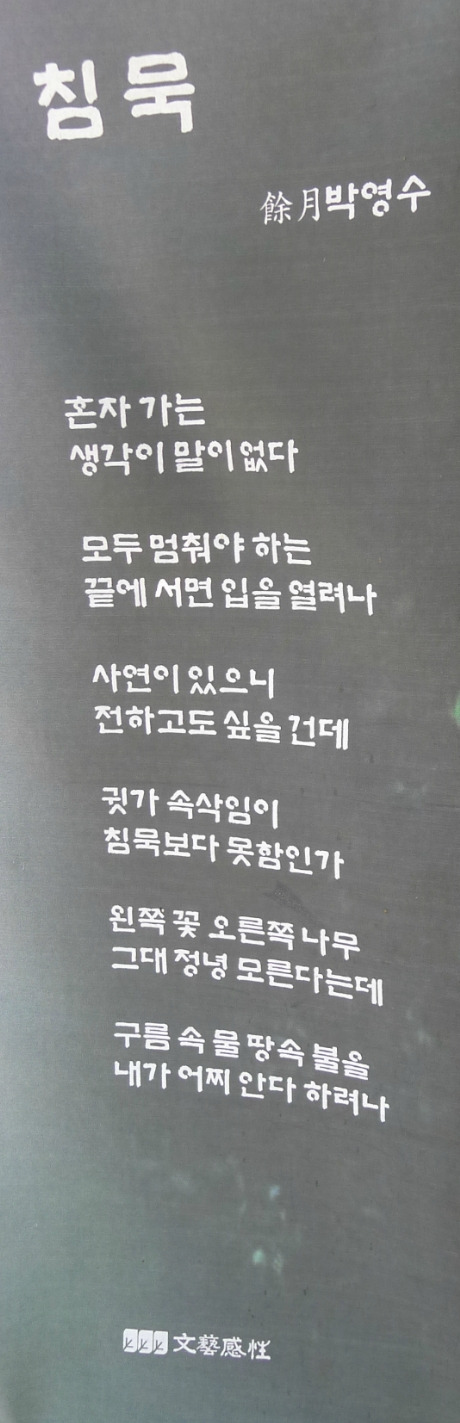 침묵
餘月박영수
혼자 가는
생각이 말이 없다
모두 멈춰야 하는
끝에 서면 입을 열려나
사연이 있으니
전하고도 싶을 건데
귓가 속삭임이
침묵보다 못함인가
왼쪽 꽃 오른쪽 나무
그대 정녕 모른다는데
구름 속 물 땅속 불을
내가 어찌 안다 하려나
文藝感性